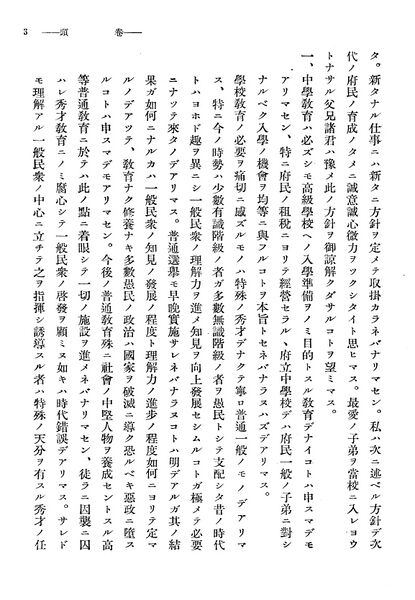 卷頭 3
タ。新タナル仕事ニハ新タニ方針ヲ定メテ取掛カラネバナリマセン。私ハ次ニ述ベル方針デ次
代ノ府民ノ育成ノタメニ誠意誠心微力ヲツクシタイト思ヒマス。最愛ノ子弟ヲ當校ニ入レヨウ
トナサル父兄諸君ハ豫メ此ノ方針ヲ御諒解クダサルコトヲ望ミマス。
一、中學教育ハ必ズシモ高級學校ヘノ入學準備ヲノミ目的トスル教育デナイコトハ申スマデモ
アリマセン、特ニ府民ノ租稅ニヨリテ經營セラルヽ府立中學校デハ府民一般ノ子弟ニ對シ
ナルベク入學ノ機會ヲ均等ニ與フルコトヲ本旨トセネバナラヌハズデアリマス。
學校教育ノ必要ヲ痛切ニ感ズルモノハ特殊ノ秀才デナクテ寧ロ普通一般ノモノデアリマ
ス、特ニ今ノ時勢ハ少數有識階級ノ者ガ多數無識階級ノ者ヲ愚民トシテ支配シタ昔ノ時代
トハヨホド趣ヲ異ニシ一般民衆ノ理解力ヲ進メ知見ヲ向上發展セシムルコトガ極メテ必要
ニナツテ來タノデアリマス。普通選擧モ早晩實施サレネバナラヌコトハ明デアルガ其ノ結
果ガ如何ニナルカハ一般民衆ノ知見ノ發展ノ程度ト理解力ノ進步ノ程度如何ニヨリテ定マ
ルノデアツテ、教育ナク修養ナキ多數愚民ノ政治ハ國家ヲ破滅ニ導ク恐ルベキ惡政ニ墮ス
ルコトハ申スマデモアリマセン。今後ノ普通教育殊ニ社會ノ中堅人物ヲ養成セントスル高
等普通教育ニ於テハ此ノ點ニ着眼シテ一切ノ施設ヲ進メネバナリマセン、徒ラニ因襲ニ囚
ハレ秀才教育ニノミ腐心シテ一般民衆ノ啓發ヲ顧ミヌ如キハ時代錯誤デアリマス。サレド
モ理解アル一般民衆ノ中心ニ立サテ之ヲ指揮シ誘導スル者ハ特殊ノ天分ヲ有スル秀才ノ任